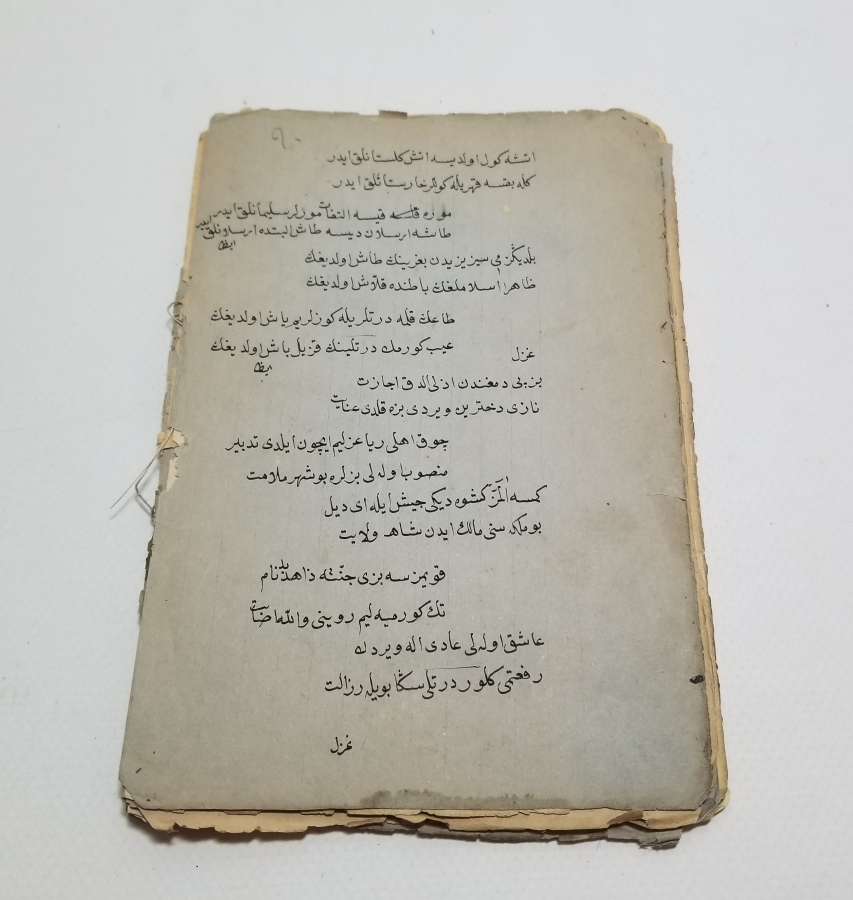 اتشه كول اولديسه اتش كلستانلق ايدر
كله بقسه قهريله كوللر خارستانلق ايدر
موره قلسه قيسه التفات مورلر سليمانلق ايدر
طاشه ارسلان ديسه طاش البتده ارسلانلق ايدر
ايضا
بلديكز مى سيز يزيدن بغرينك طاش اولديغك
ظاهرا اسلاملغك باطنده قلاش اولديغك
طاعك قلمه درتلريله كوزلريم ياش اولديغك
عيب كورمك درتلينك قزيل باش اولديغك
ايضا
غزل
بز پى دمغندن ازلى الدق اجازت
نازى دخترين ويردى بزه قلدى عنايت
چوق اهلى ريا عزليم ايچون ايلدى تدبير
منصوب اوله لى بزلره بو شهر ملامت
كمسه المز كشوه ديكى جيش ايله اى ديل
بو ملكه سنى مالك ايدن شاهـ ولايت
قويمز سه بزى جنته زاهد بد نام
تك كورميه ليم روينى والله رضايت
عاشق اوله لى عادى اله ويردك
رفعتمى كلور درتلى سكا بويله رزالت
غزل